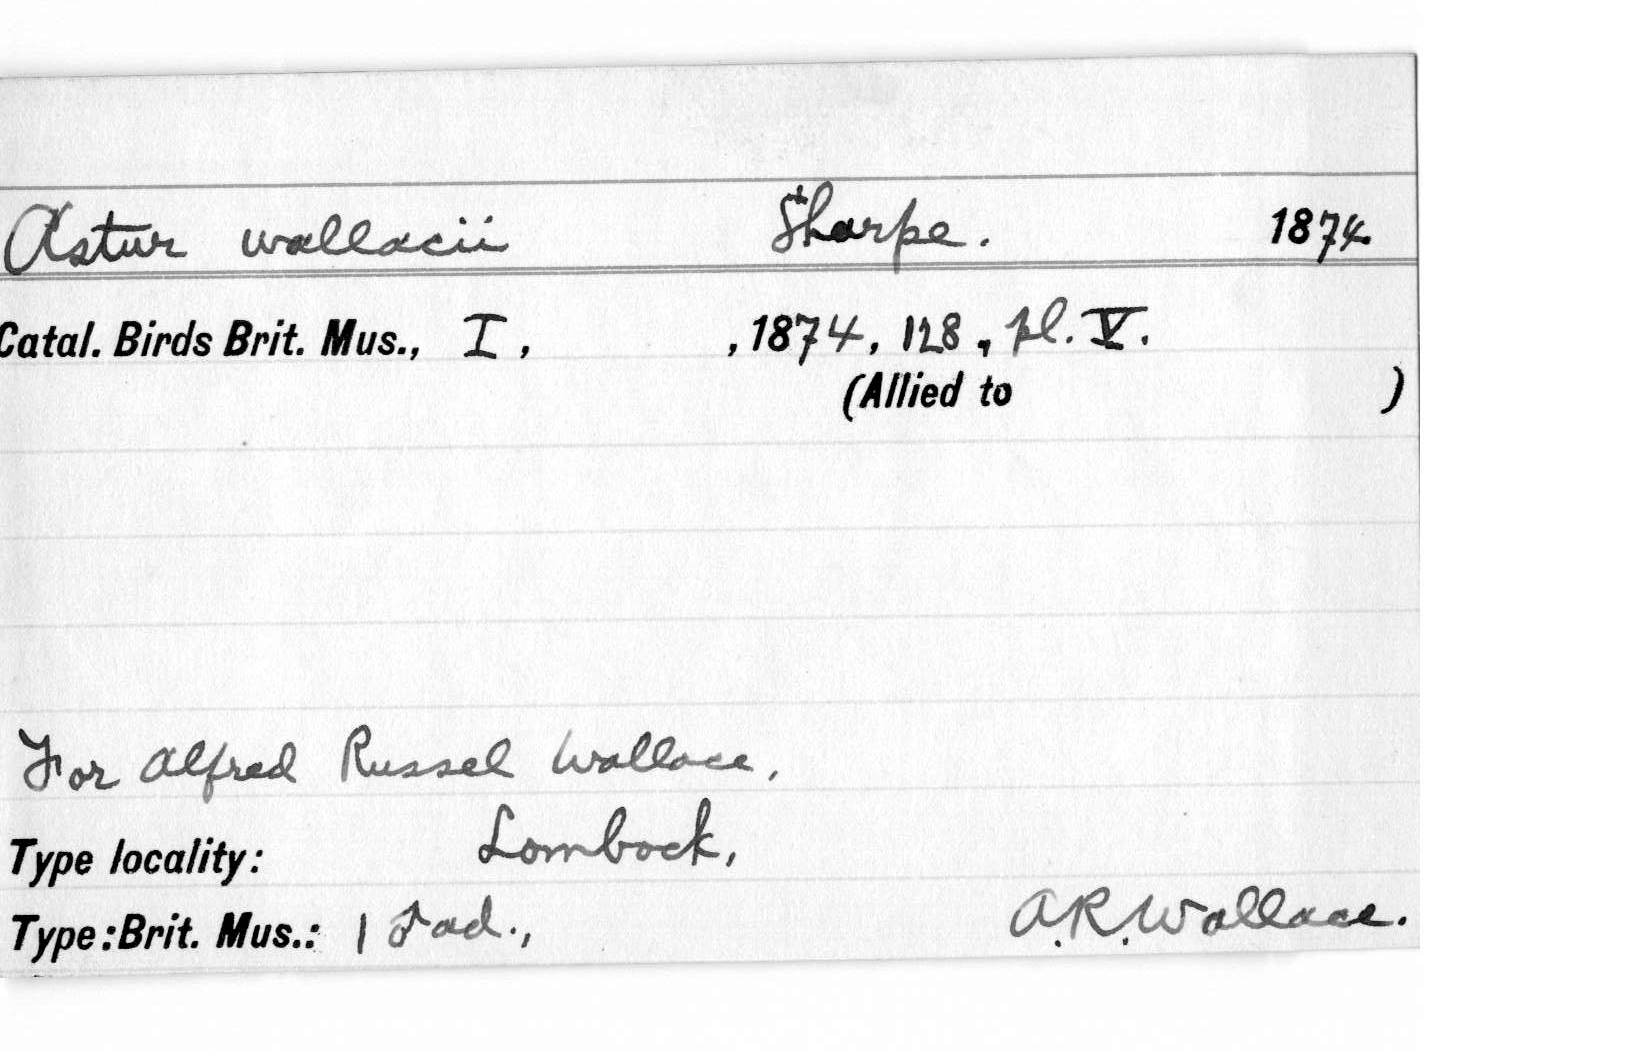 Astur wallacii Sharpe. 1874.
Catal. Birds Brit. Mus., I, , 1874, 128, pl. V.
(Allied to )
For Alfred Russel Wallace,
Type locality: Lombock,
Type: Brit. Mus.: 1 ♂ ad., A.R. Wallace.